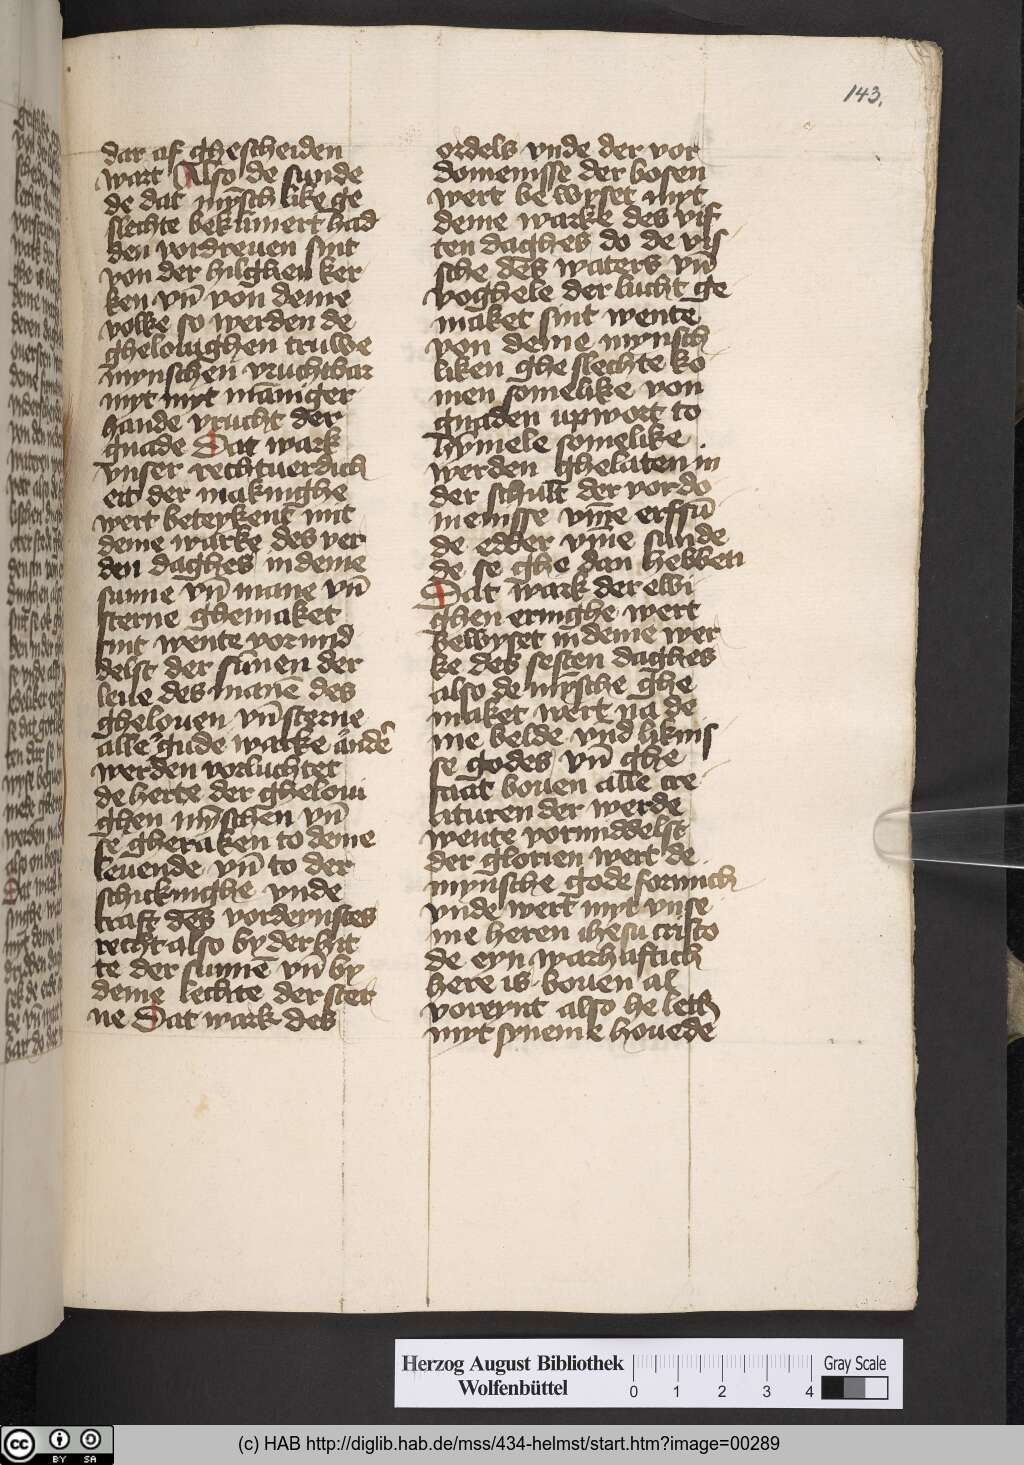 143.
dar af ghescheiden
wart Also de sunde
de dat mȳsch like ge
slechte bekūmert had
den vordreuen sint
von der hilghen ker
ken vn̄ von deme
volke so werden de
ghelouighen truwe
mynschen vruchtbar
myt myt māniger
hande vrucht der
gnade Dat wark
vnser rechtuerdich
eit der makinghe
wert beteykent mit
deme warke des ver
den daghes in deme
sunne vn̄ mane vn̄
sterne ghemaket
sint wente vormid
delst der sūnen der
leue des manē des
ghelouen vn̄ sterne
alle gude warke
werden vorluchtet
de herte der gheloui
ghen mȳschen vn̄
se gheraken to deme
leuende vn̄ to der
schickinghe vnde
kraft des vordeynstes
recht also by der hit
te der sunnē vn̄ by
deme lechte der ster
ne Dat wark des
ordels vnde der vor
domenisse der bosen
wert be wyset myt
deme warke des vif
ten daghes do de vis
sche des waters vn̄
voghele der lucht ge
maket sint wente
von deme mynsch
liken ghe slechte ko
men somelike von
gnaden upwort to
hymele somelike
werden ghelaten in
der schult der vordo
menisse vm̄e erfsū
de edder vm̄e sunde
de se ghe dan hebben
Dat wark der ewi
ghen eringhe wert
bewyset in deme wer
ke des sesten daghes
also de mȳsche ghe
maket wert na de
me belde vnd liknis
se godes vn̄ ghe
saāt bouen alle cre
aturen der werde
wente vormiddelst
der glorien wert de
mynsche gode formich
vnde wert myt vnse
me heren ihesu cristo
de eyn warhaftich
here is bouen al
voreynt also he leth
myt syneme houede
Herzog August Bibliothek
Wolfenbüttel
0 1 2 3 4
Gray Scale
cc BY SA
(c) HAB http://diglib.hab.de/mss/434-helmst/start.htm?image=00289